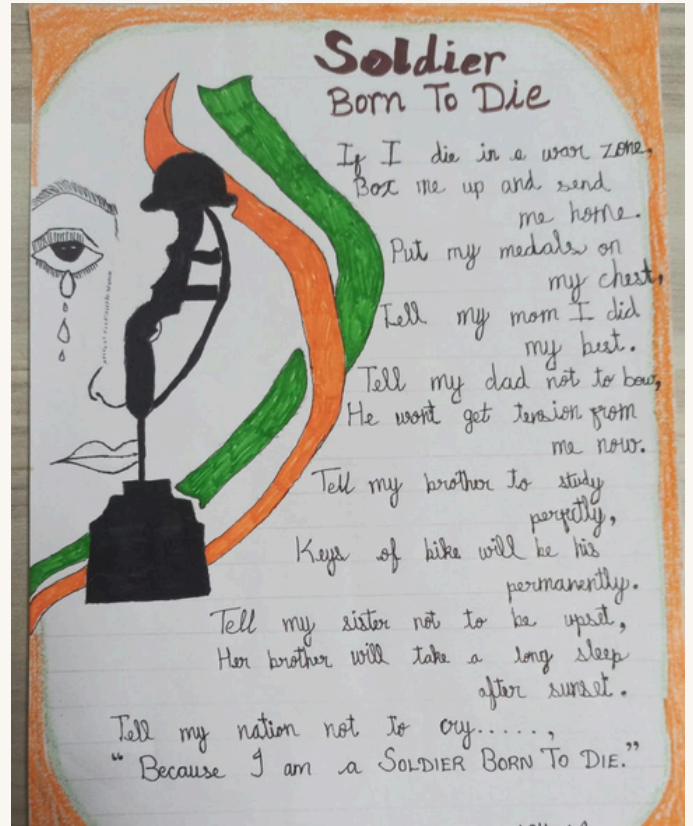 Soldier
Born To Die
If I die in a war zone,
Box me up and send
me home.
Put my medals on
my chest,
Tell my mom I did
my best.
Tell my dad not to bow,
He wont get tension from
me now.
Tell my brother to study
perfectly,
Keys of bike will be his
permanently.
Tell my sister not to be upset,
Her brother will take a long sleep
after sunset.
Tell my nation not to cry......,
“ Because I am a SOLDIER BORN TO DIE.”